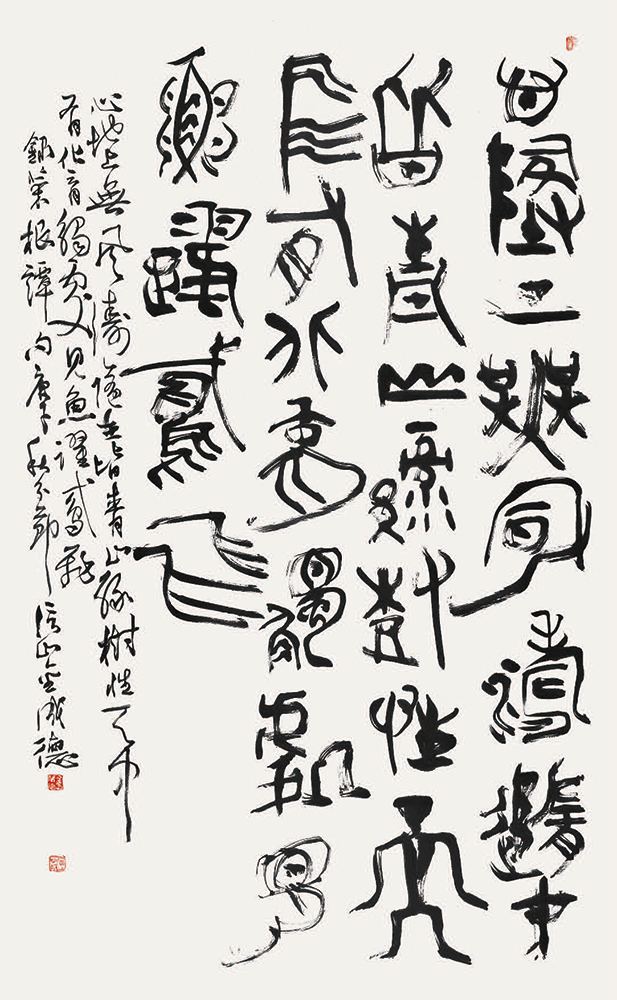 心地上無風濤隨在
皆青山綠樹性天
中有化育觸處見
魚躍鳶飛
心地上無風濤隨在皆青山綠樹性天中
有化育觸處見魚躍鳶飛
錄菜根譚句庚子秋分節信山金成德